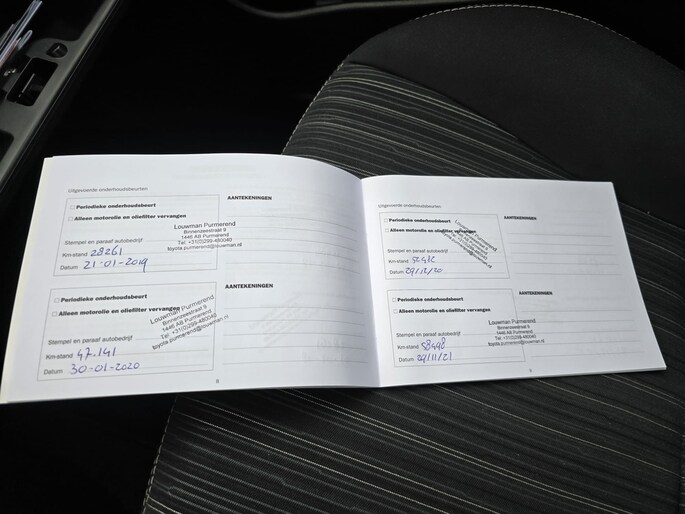 Uitgevoerde onderhoudsbeurten
Periodieke onderhoudsbeurt
AANTEKENINGEN
Alleen motorolie en oliefilter vervangen
Louwman Purmerend
Binnenzeestraat 9
1446 AB Purmerend
Tel: +31(0)299-480040
toyota.purmerend@louwman.nl
Stempel en paraaf autobedrijf
Km-stand 28261
Datum 21-01-2019
Periodieke onderhoudsbeurt
AANTEKENINGEN
Alleen motorolie en oliefilter vervangen
Louwman Purmerend
Binnenzeestraat 9
1446 AB Purmerend
Tel: +31(0)299-480040
toyota.purmerend@louwman.nl
Stempel en paraaf autobedrijf
Km-stand 47.141
Datum 30-01-2020
8
Uitgevoerde onderhoudsbeurten
Periodieke onderhoudsbeurt
AANTEKENINGEN
Alleen motorolie en oliefilter vervangen
Louwman Purmerend
Binnenzeestraat 9
1446 AB Purmerend
Tel: +31(0)299-480040
toyota.purmerend@louwman.nl
Stempel en paraaf autobedrijf
Km-stand
Datum 29/12/20
Periodieke onderhoudsbeurt
AANTEKENINGEN
Alleen motorolie en oliefilter vervangen
Louwman Purmerend
Binnenzeestraat 9
1446 AB Purmerend
Tel: +31(0)299-480040
toyota.purmerend@louwman.nl
Stempel en paraaf autobedrijf
Km-stand 58498
Datum 29/11/21
9